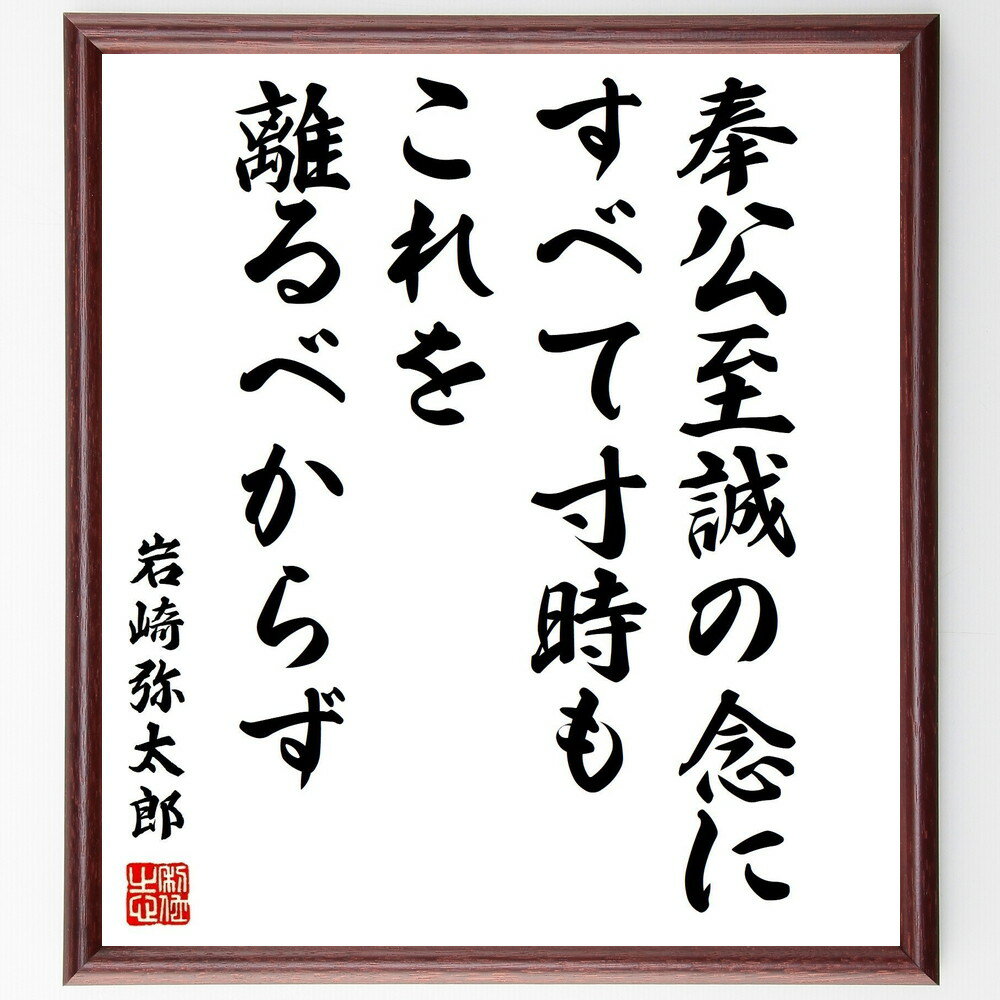 奉公至誠の念に
すべて寸時も
これを
離るべからず
岩崎弥太郎